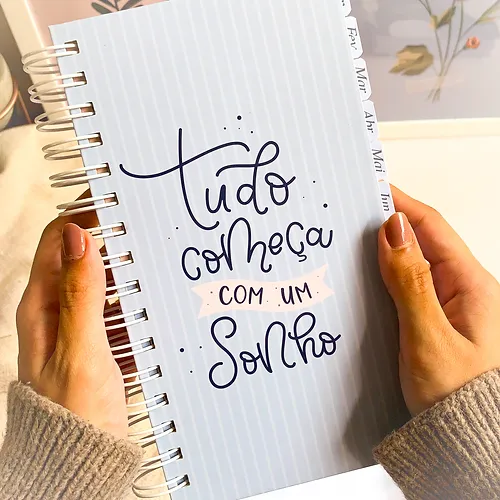 Tudo
começa
COM UM
Sonho
Fev
Mar
Abr
Mai
Jun